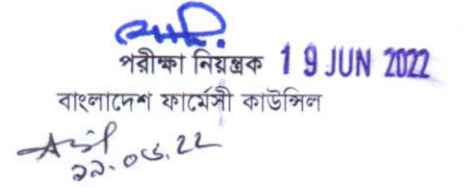 পরীক্ষা নিয়ন্ত্রক 19 JUN 2022
বাংলাদেশ ফার্মেসী কাউন্সিল
১৯.০৬.২২